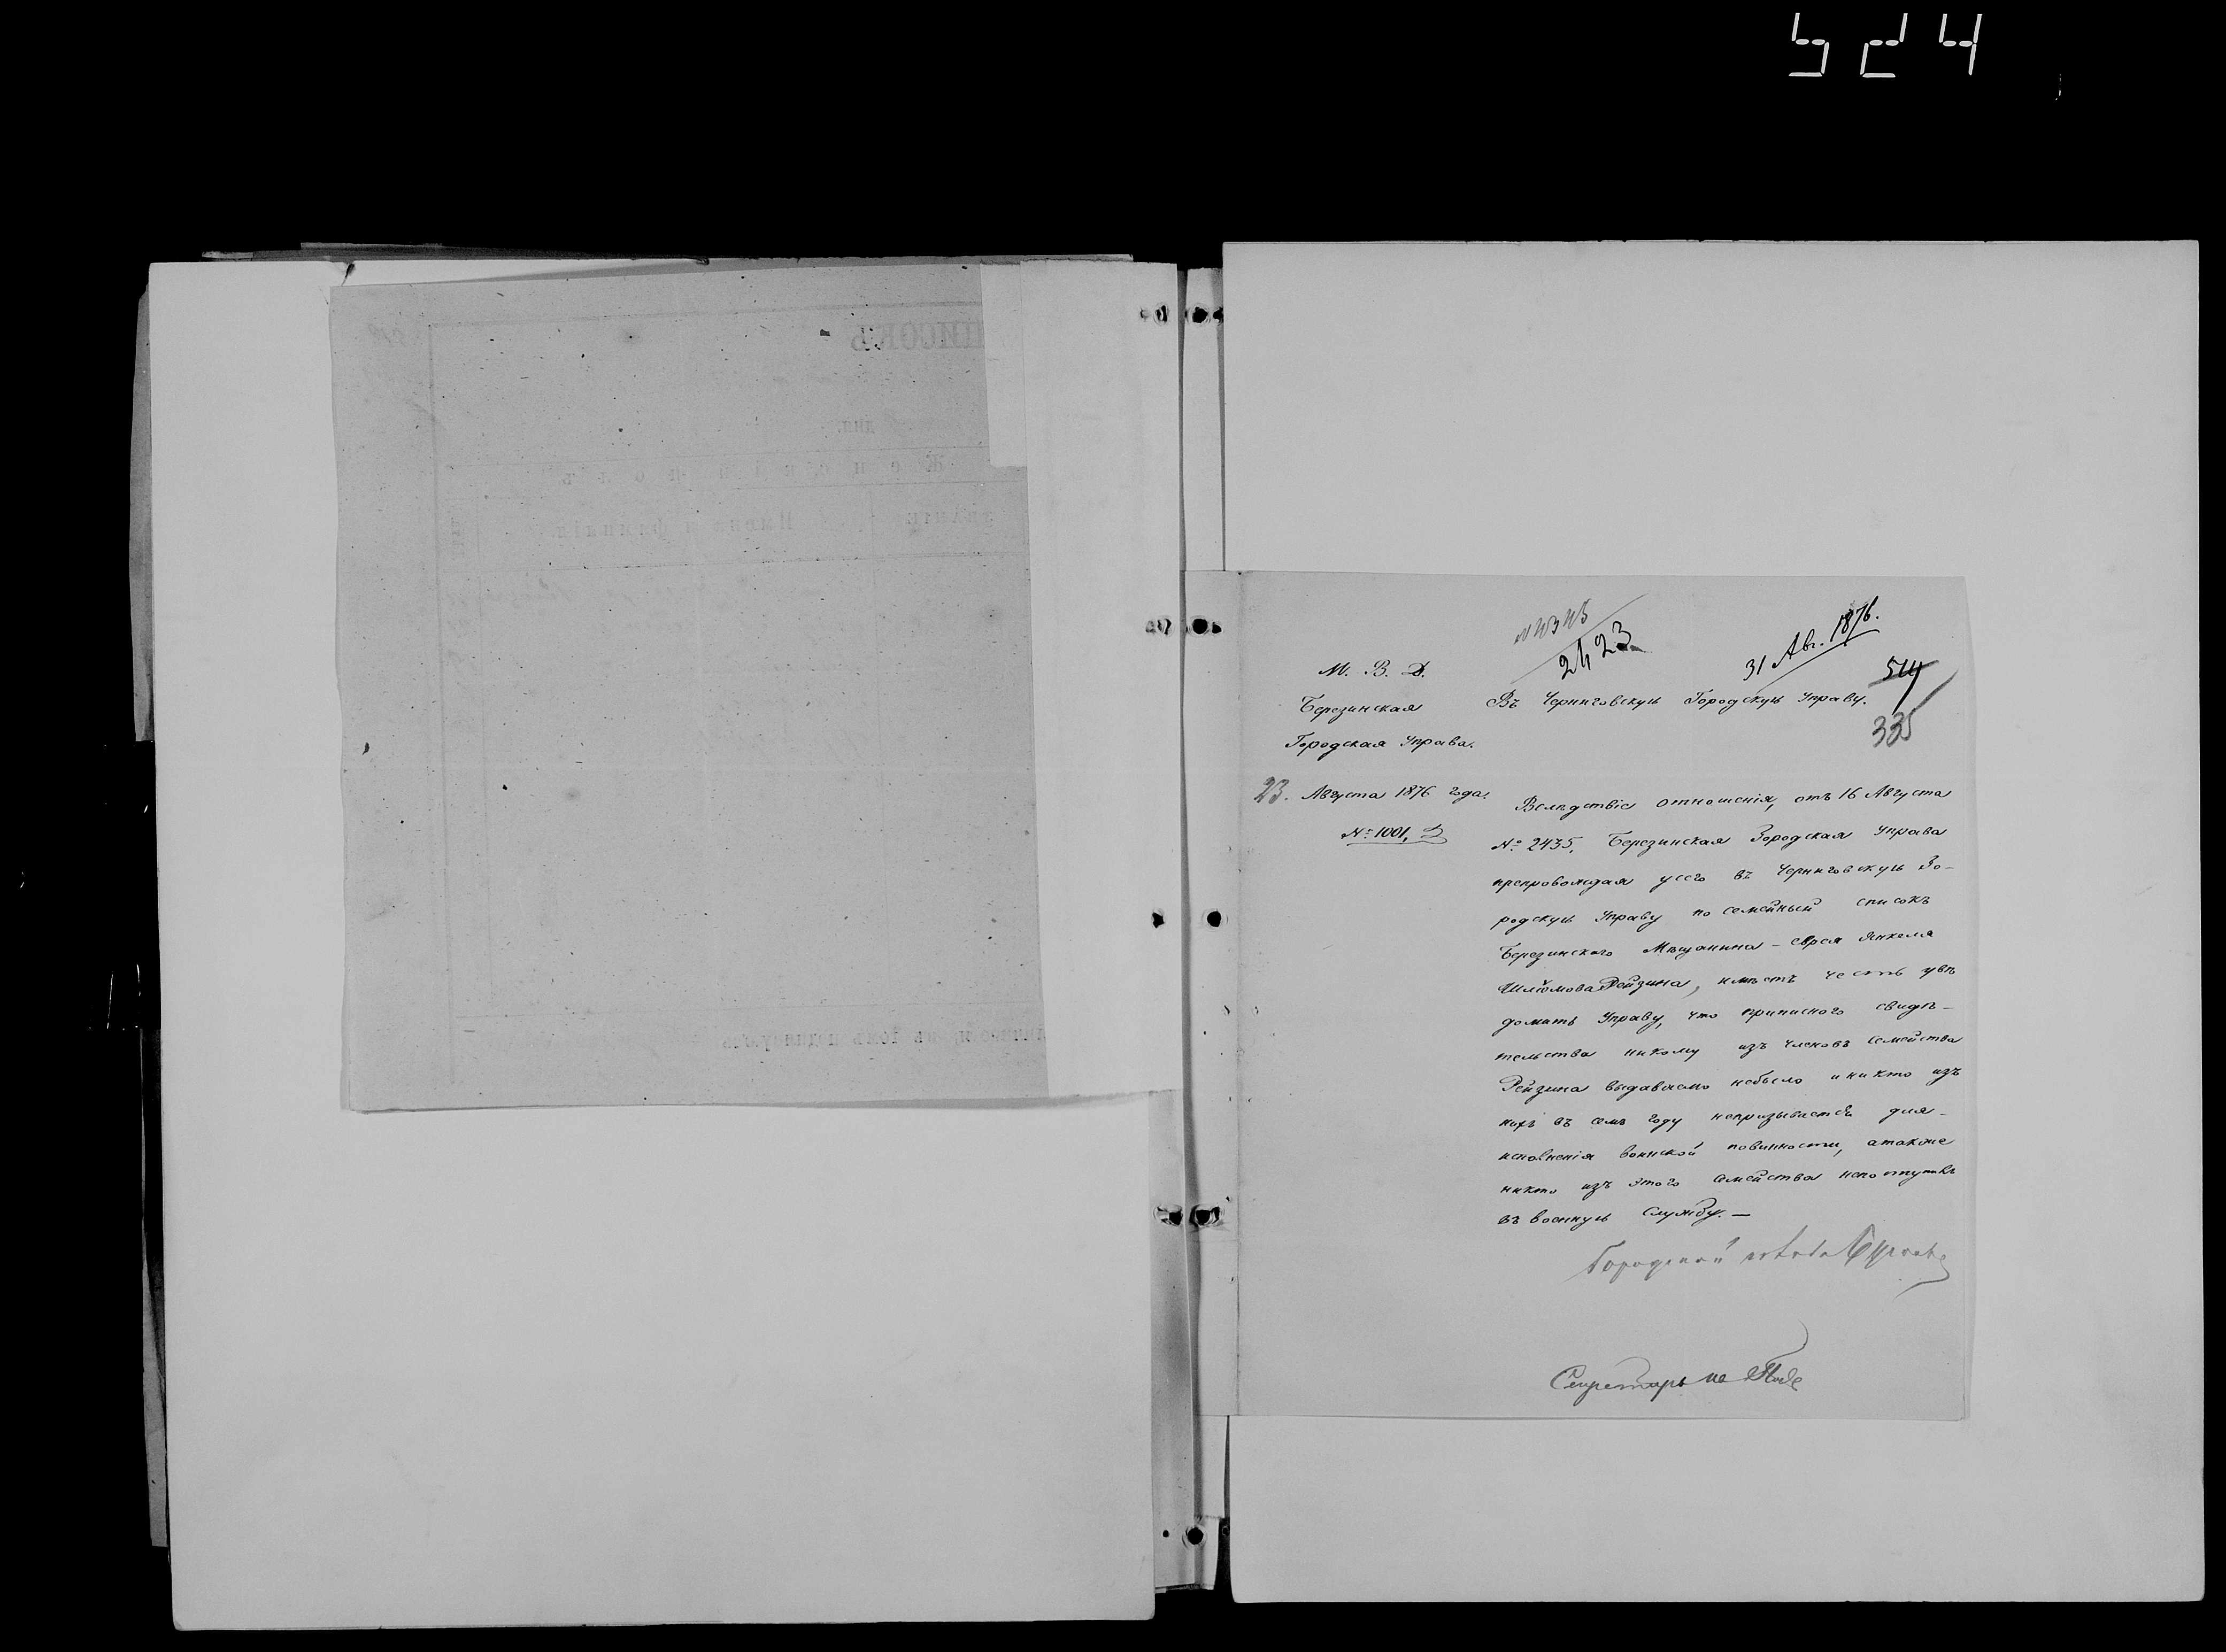 524
2423
31 Авг. 1876.
514
335
М. В. Д.
Березинская
Городская Управа.
23. Августа 1876 года.
№ 1001,
Въ Черниговскую Городскую Управу.
Вслѣдствіе отношенія, отъ 16 Августа
№ 2435, Березинская Городская Управа
препровождая у сего въ Черниговскую Го-
родскую Управу посемейный списокъ
Березинского Мѣщанина - еврея Янкеля
Шліомова Рейзина, имѣетъ честь увѣ
домить Управу, что приписного свидѣ-
тельства никому изъ членовъ семейства
Рейзина выдаваемо небыло и никто изъ
нихъ въ семъ году непризывается для-
исполненія воинской повинности, атакже
никто изъ этого семейства непоступилъ
въ военную службу. —
Городской голова
Секретарь
ПИСОКЪ
дня.
Женскій полъ
Имена и фамиліи